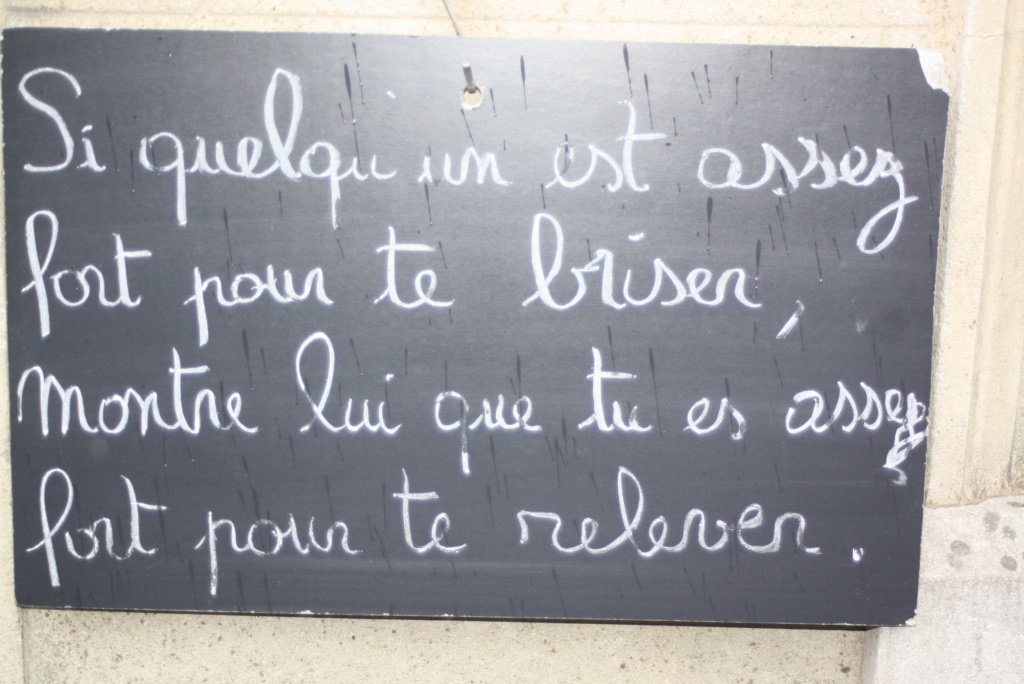 Si quelqu un est assez
fort pour te briser,
montre lui que tu es assez
fort pour te relever.